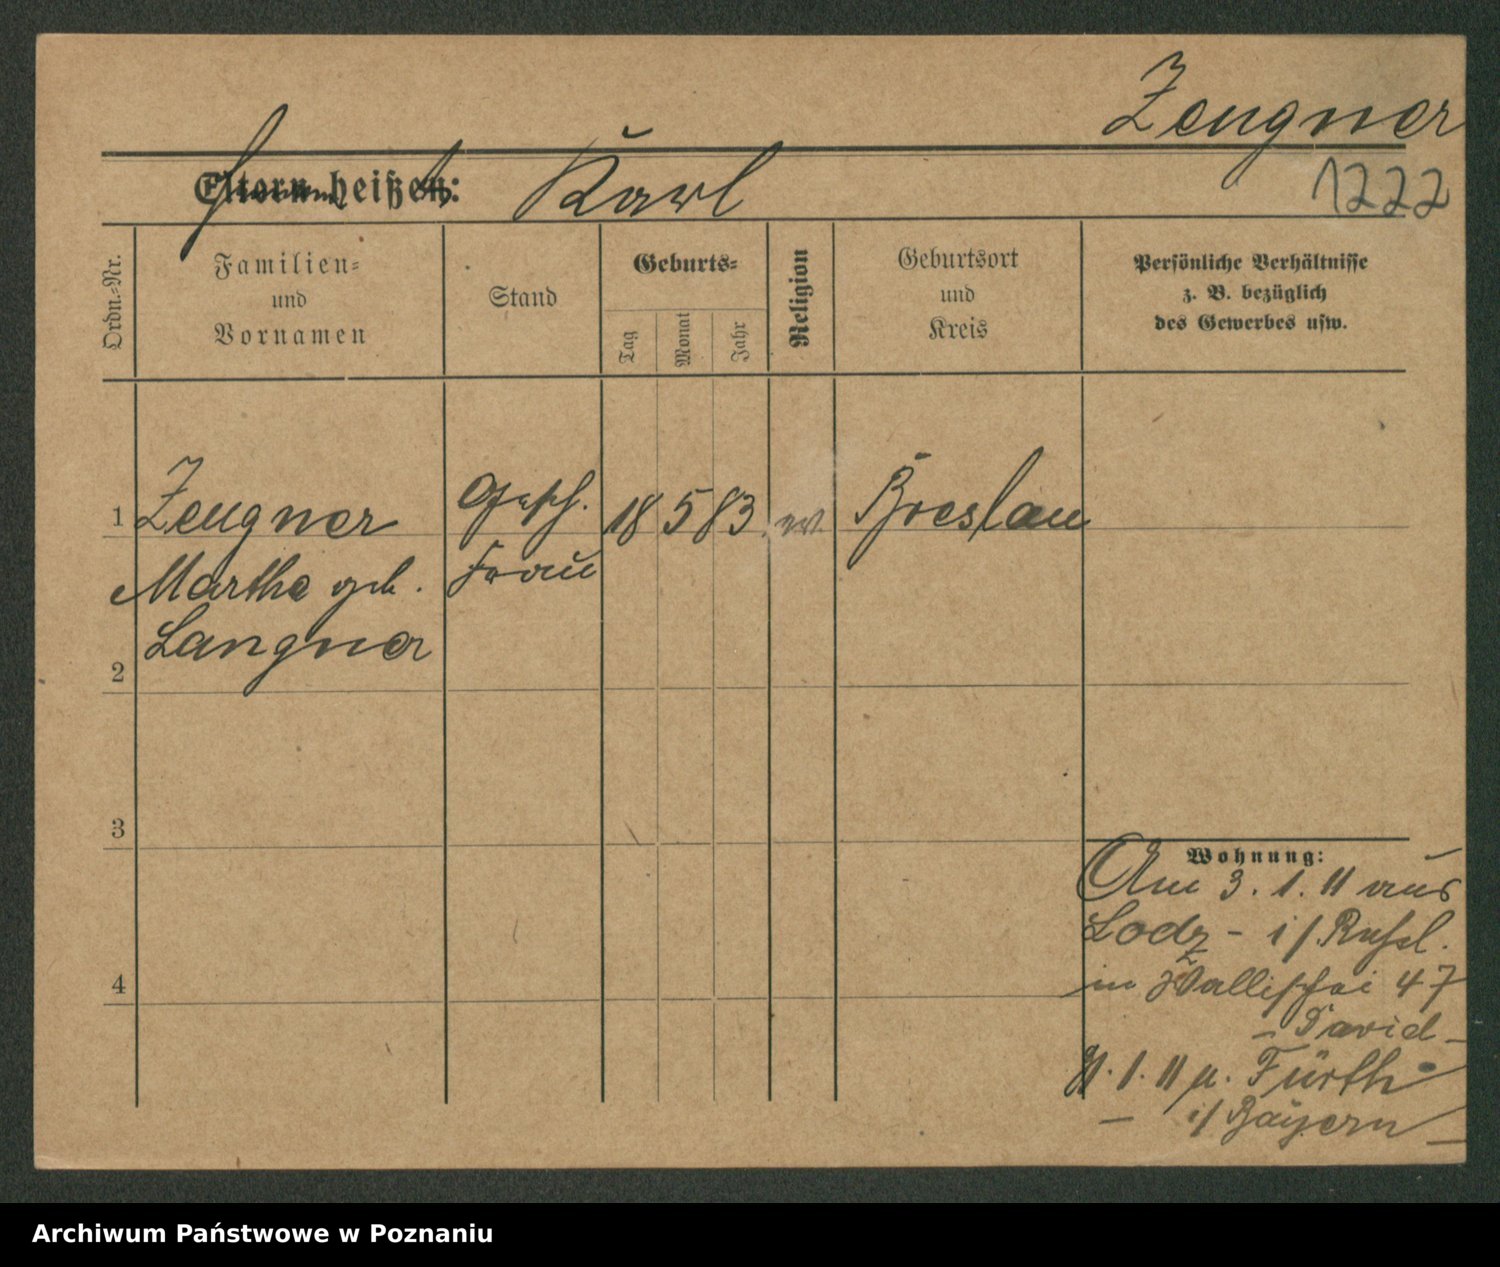 Zeugner
Eltern heißen: Karl
1222
Ordn.-Nr.
Familien-
und
Vornamen
Stand
Geburts-
Tag
Monat
Jahr
Religion
Geburtsort
und
Kreis
Persönliche Verhältnisse
z. B. bezüglich
des Gewerbes usw.
1 Zeugner Gesch. 18 5 83 ev Breslau
Martha geb. Frau
Langner
2
3
4
Wohnung:
Am 3. 1. 11 aus
Lodz - i/Rußl.
in Wallischei 47
- David -
1. 11 n. Fürth
- i/Bayern -
Archiwum Państwowe w Poznaniu